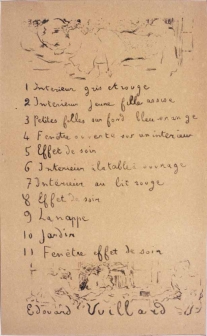 1 Interieur gris et rouge
2 Interieur jeune fille assise
3 petites filles sur fond bleu
4 Fenetre ouverte sur un interieur
5 Effet de soir
6 Interieur table ouvrage
7 Interieur au lit rouge
8 Effet de soir
9 La nappe
10 Jardin
11 Fenêtre effet de soir
Edouard Vuillard